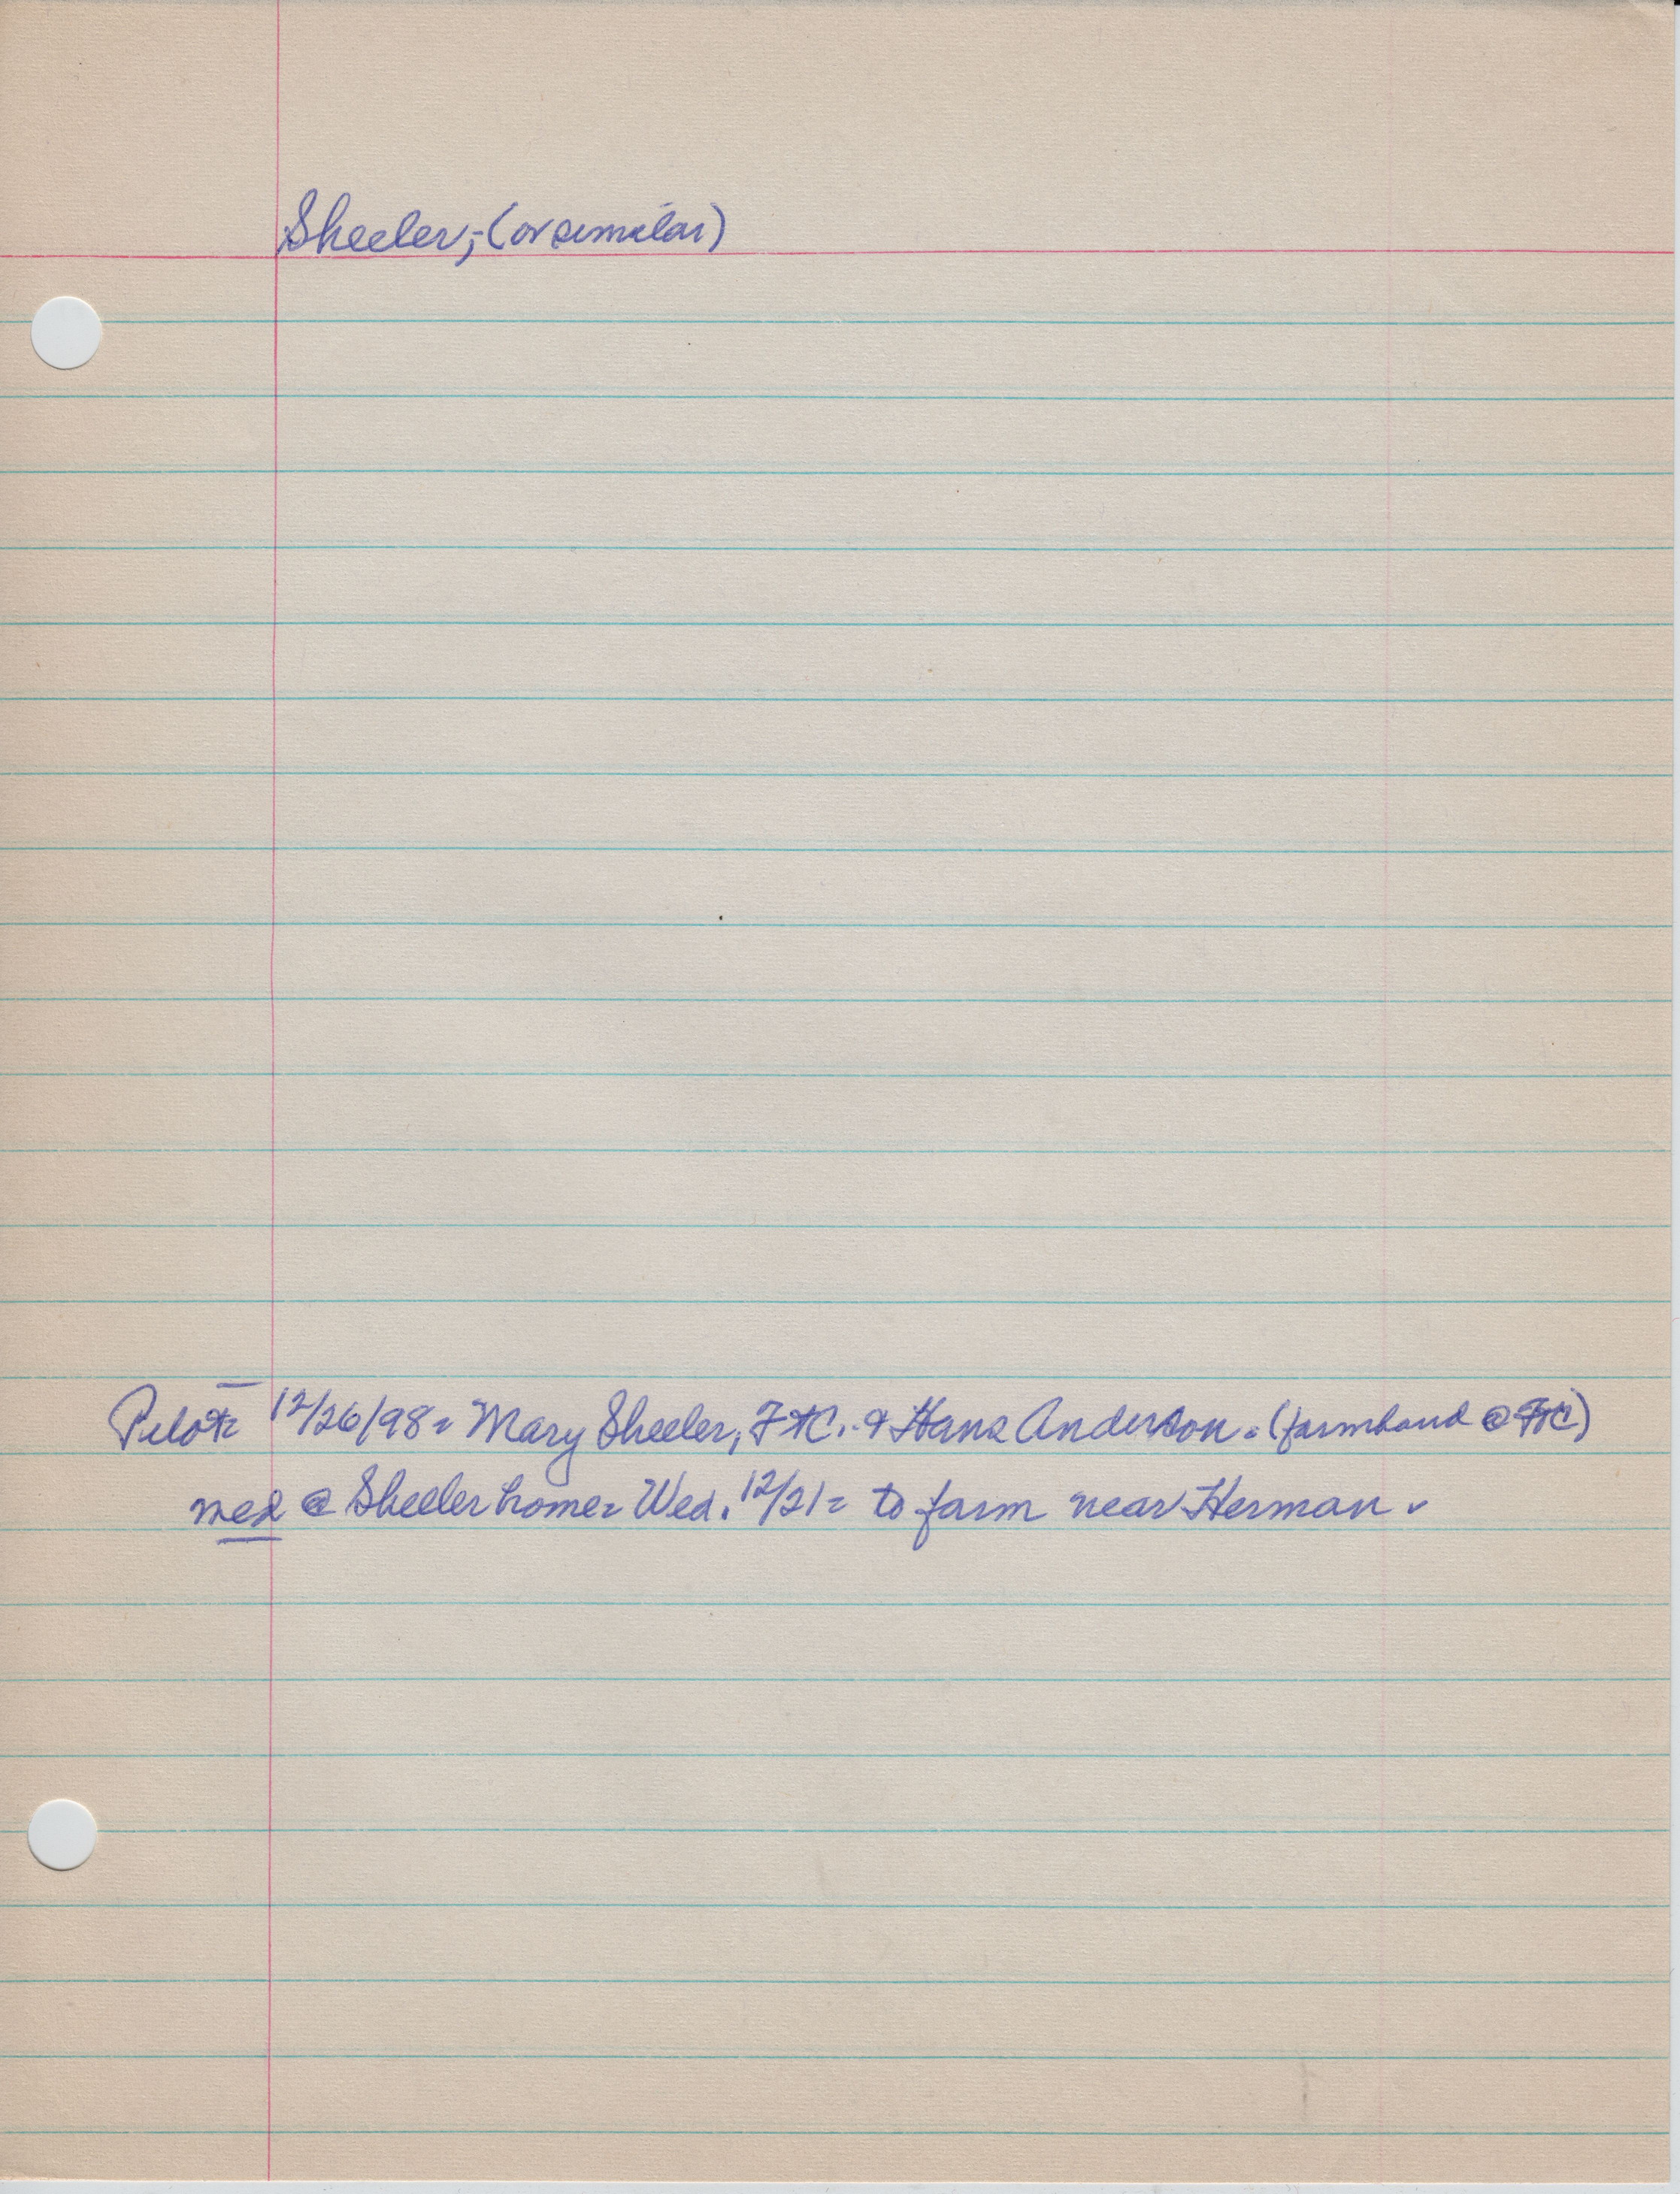 Sheeler,- (or similar)
Pilot- 12/26/98- Mary Sheeler, FtC. & Hans Anderson- (farmhand @ FtC)
wed @ Sheeler home- Wed. 12/21- to farm near Herman.